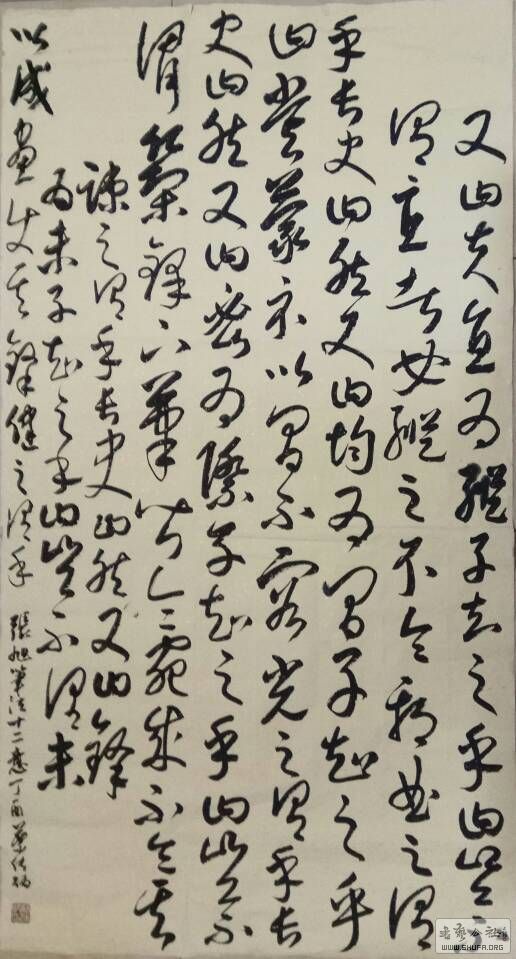 又曰夫直为縱子知之乎曰豈不
謂直者必縱之不令邪曲之謂
乎長史曰然又曰均为間子知之乎
曰嘗蒙示以間不容光之謂乎長
史曰然又曰密为際子知之乎曰豈不
謂築鋒下筆皆令宛成不令其
疎之謂乎長史曰然又曰鋒
为末子知之乎曰豈不謂末
以成畫使其鋒健之謂乎
張旭筆法十二意丁酉
书艺公社
WWW.SHUFA.ORG